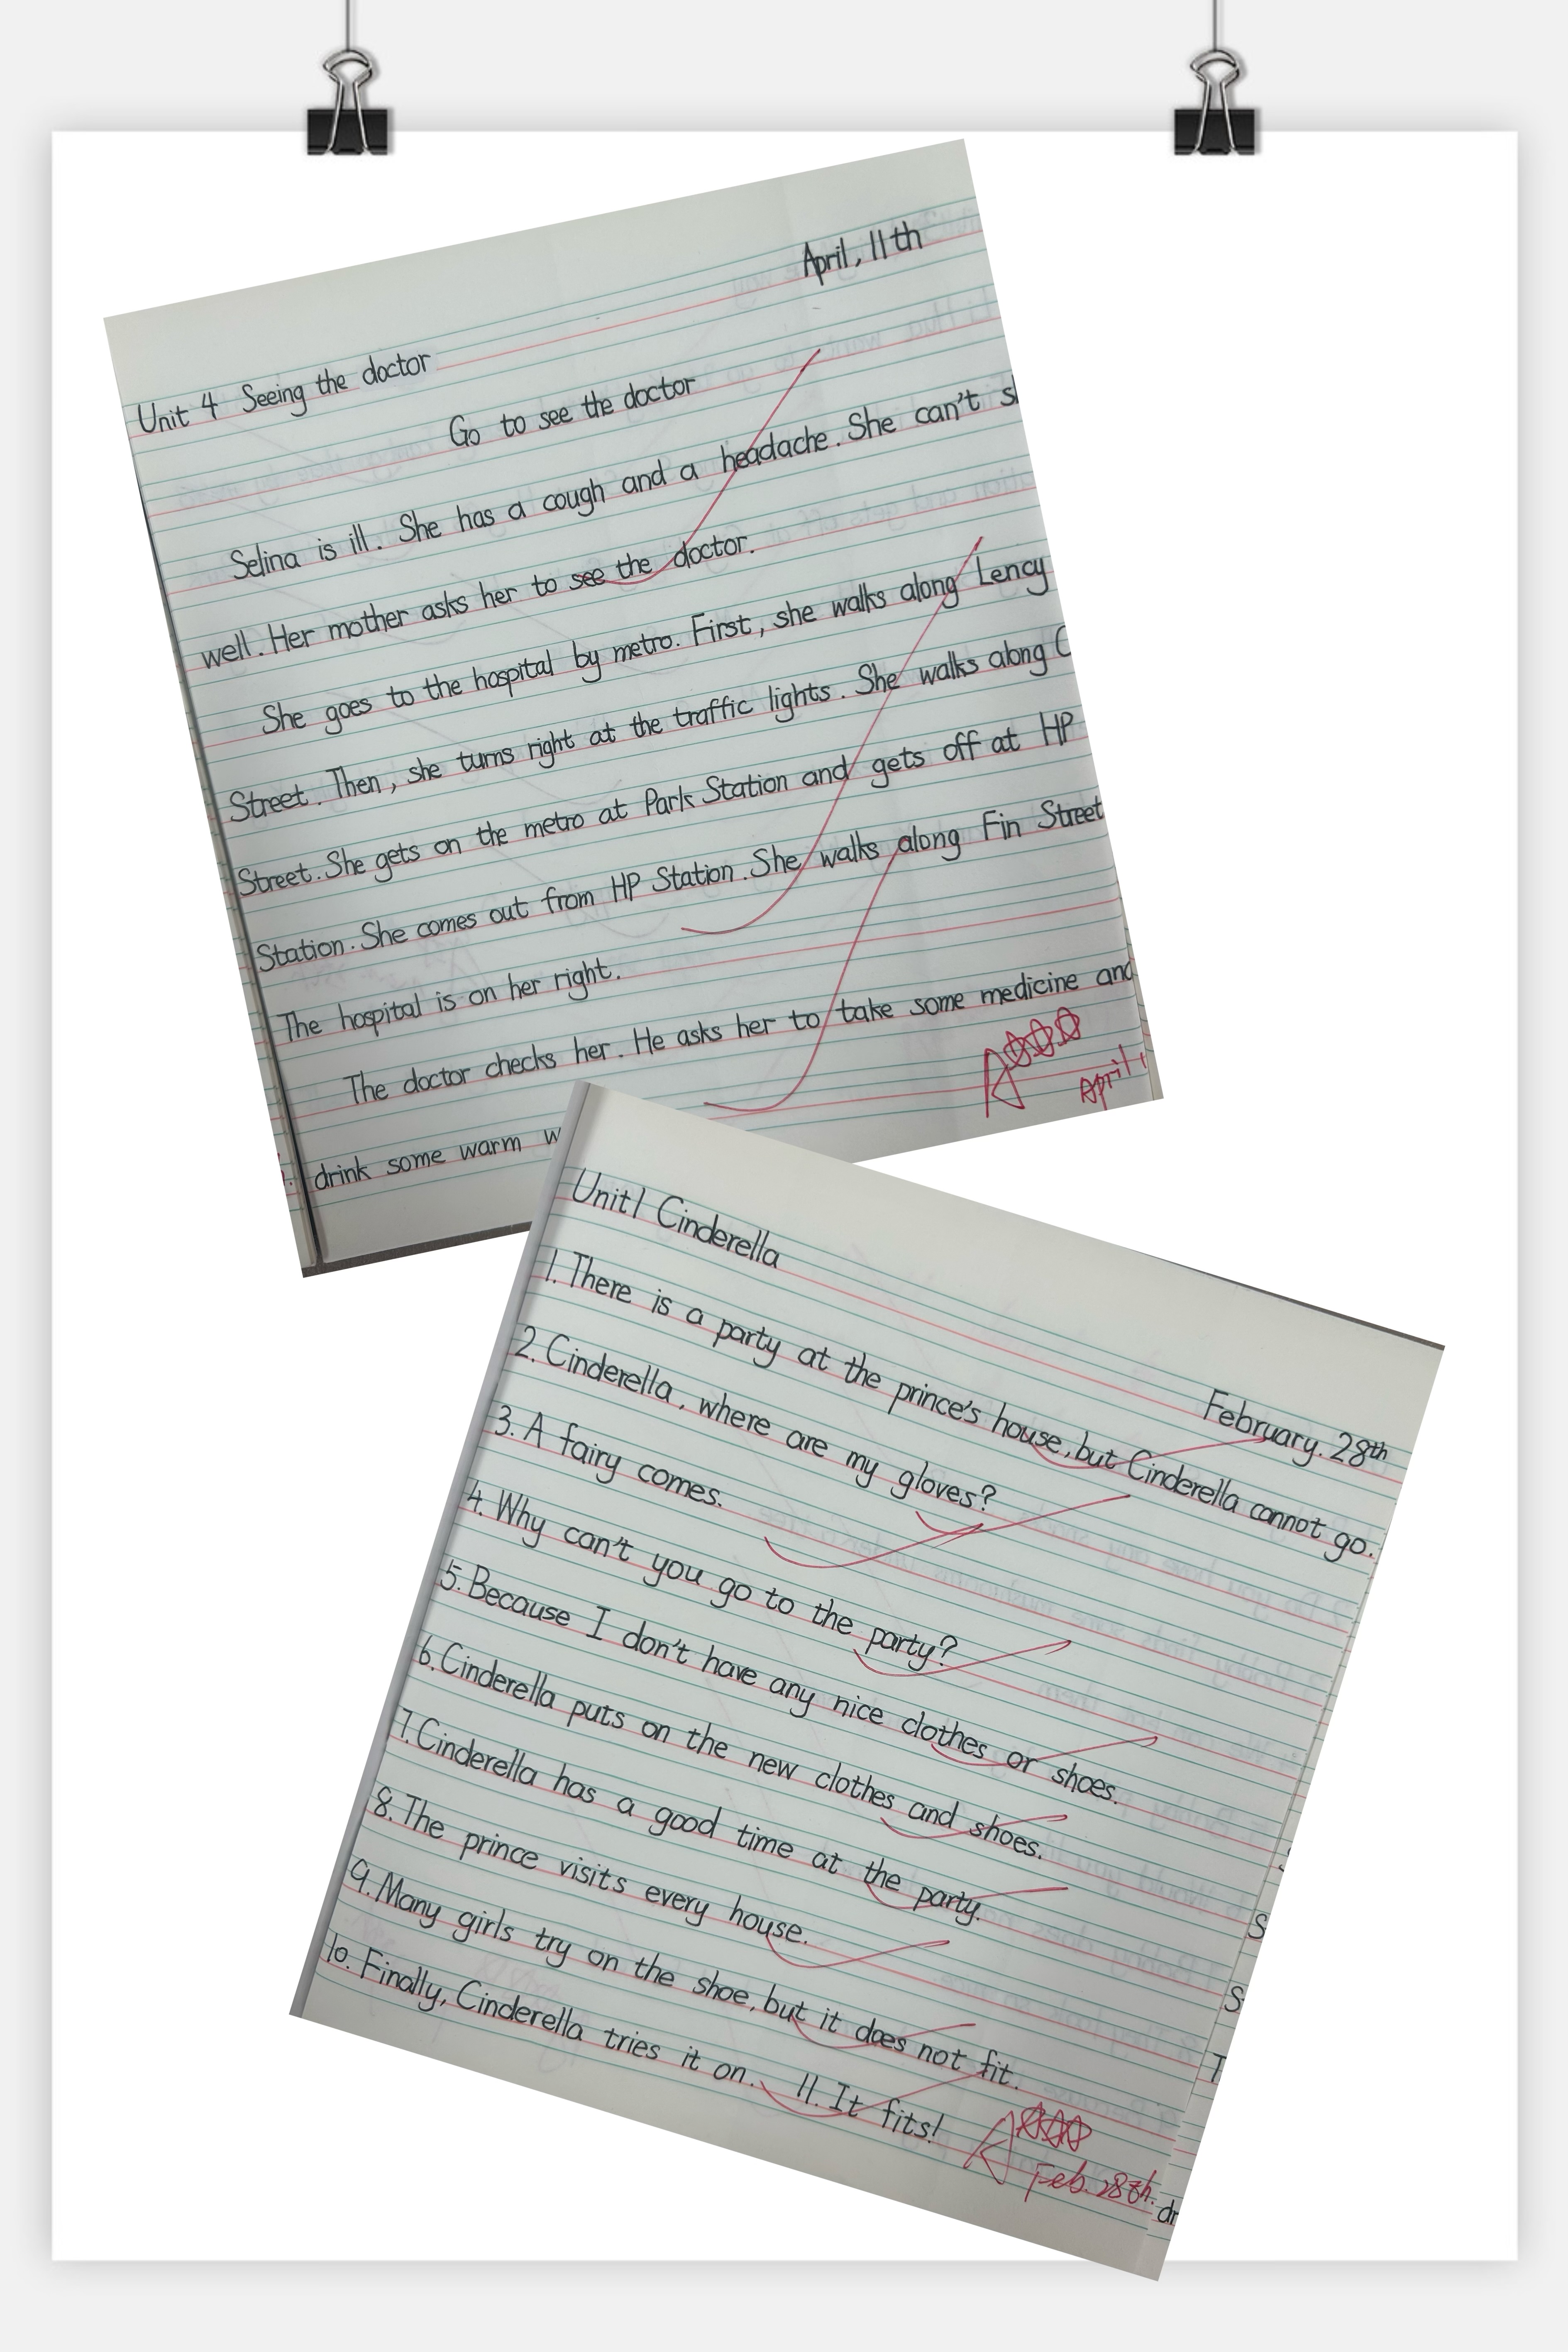 April, 11th
Unit 4 Seeing the doctor
Go to see the doctor
Selina is ill. She has a cough and a headache. She can't
well. Her mother asks her to see the doctor.
She goes to the hospital by metro. First, she walks along Lency
Street. Then, she turns right at the traffic lights. She walks along
Street. She gets on the metro at Park Station and gets off at HP
Station. She comes out from HP Station. She walks along Fin Street
The hospital is on her right.
The doctor checks her. He asks her to take some medicine and
drink some warm
A
April
Unit1 Cinderella
February. 28th
1. There is a party at the prince's house, but Cinderella cannot go.
2. Cinderella, where are my gloves?
3. A fairy comes.
4. Why can't you go to the party?
5. Because I don't have any nice clothes or shoes.
6. Cinderella puts on the new clothes and shoes.
7. Cinderella has a good time at the party.
8. The prince visits every house.
9. Many girls try on the shoe, but it does not fit.
10. Finally, Cinderella tries it on. 11. It fits!
A
Feb. 28th.